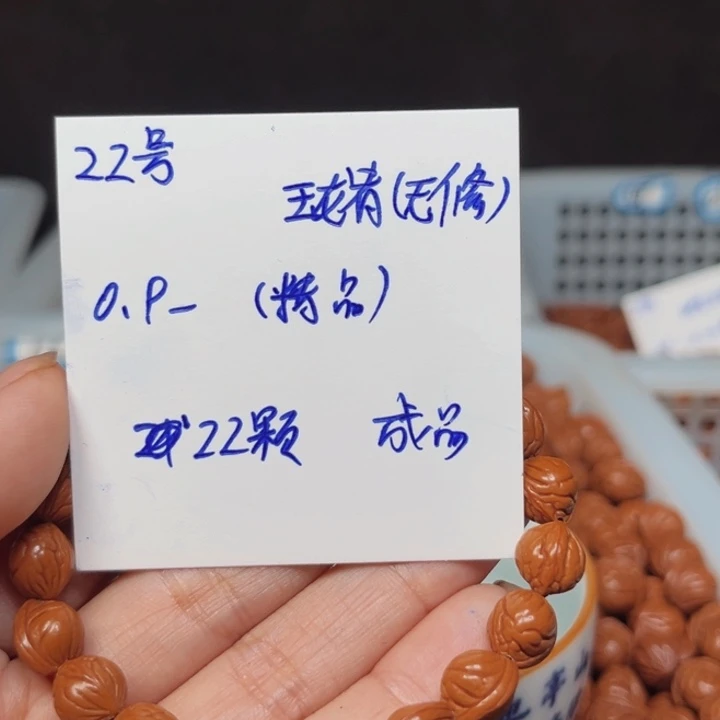 22号
王龙青(无修)
0.9- (精品)
22颗 成品